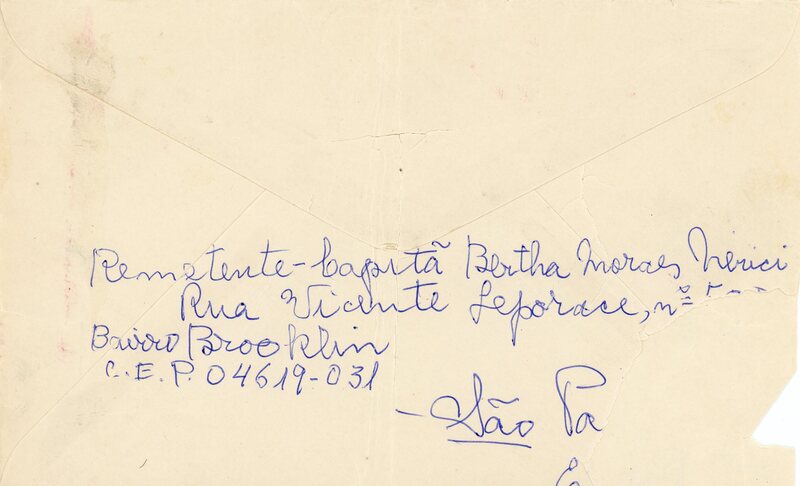 Remetente - Capitã Bertha Moraes Nérici
Rua Vicente Leporace, nº
Bairro Brooklin
C.E.P. 04619-031
- São Pa